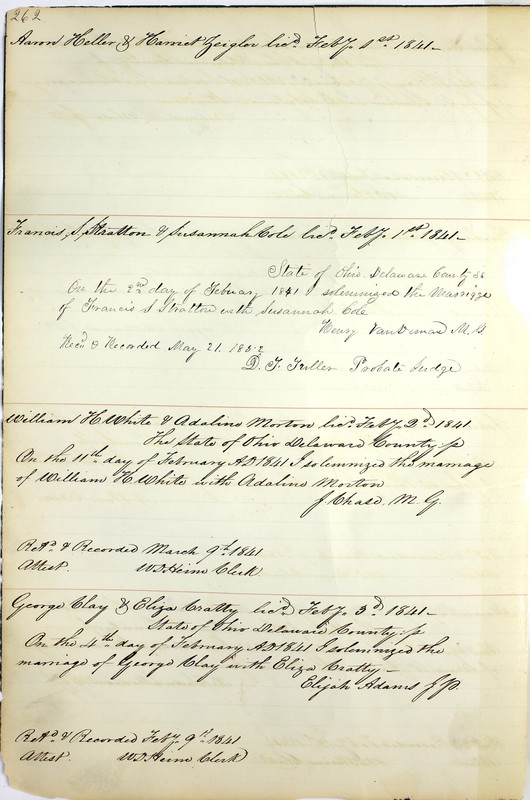 262
Aaron Heller & Harriet Zeigler licd. Feby. 1st. 1841-
Francis, S, Stratton & Susannah Cole licd. Feby. 1st. 1841-
State of Ohio Delaware County ss
On the 2nd day of Febuary 1841 I solemnized the Marrigge
of Francis S Stratton with Susannah Cole
Henry M.G.
Recd & Recorded May 21. 1852
D. T. Fuller Probate Judge
William H. White & Adaline Morton licd. Feby. 2d. 1841.
The State of Ohio Delaware County ss
On the 11th. day of February AD 1841 I solemnized the marriage
of William H. White with Adaline Morton
J Chase M. G.
Retd. & Recorded March 9th. 1841
Attest. W.D. Heim Clerk.
George Clay & Eliza Cratty licd. Feby. 3d. 1841-
State of Ohio Delaware County ss
On the 4th. day of February AD 1841 I solemnized the
marriage of George Clay with Eliza Cratty-
Elijah Adams J P.
Retd. & Recorded Feby. 9th. 1841
Attest. W.D. Heim Clerk